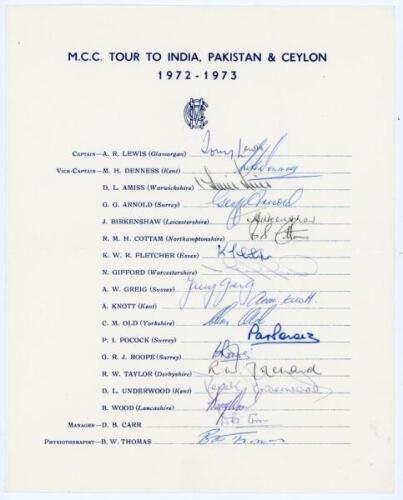 M.C.C. TOUR TO INDIA, PAKISTAN & CEYLON
1972-1973
CAPTAIN—A. R. LEWIS (Glamorgan) Tony Lewis
VICE-CAPTAIN—M. H. DENNESS (Kent) Mike Denness
D. L. AMISS (Warwickshire)
G. G. ARNOLD (Surrey) Geoff Arnold
J. BIRKENSHAW (Leicestershire) J Birkenshaw
R. M. H. COTTAM (Northamptonshire) Bob Cottam
K. W. R. FLETCHER (Essex) K Fletcher
N. GIFFORD (Worcestershire)
A. W. GREIG (Sussex) Tony Greig
A. KNOTT (Kent) Alan Knott
C. M. OLD (Yorkshire) Chris Old
P. I. POCOCK (Surrey) Pat Pocock
G. R. J. ROOPE (Surrey)
R. W. TAYLOR (Derbyshire) R. W. Taylor
D. L. UNDERWOOD (Kent) Derek Underwood
B. WOOD (Lancashire) Barry Wood
MANAGER—D. B. CARR
PHYSIOTHERAPIST—B. W. THOMAS